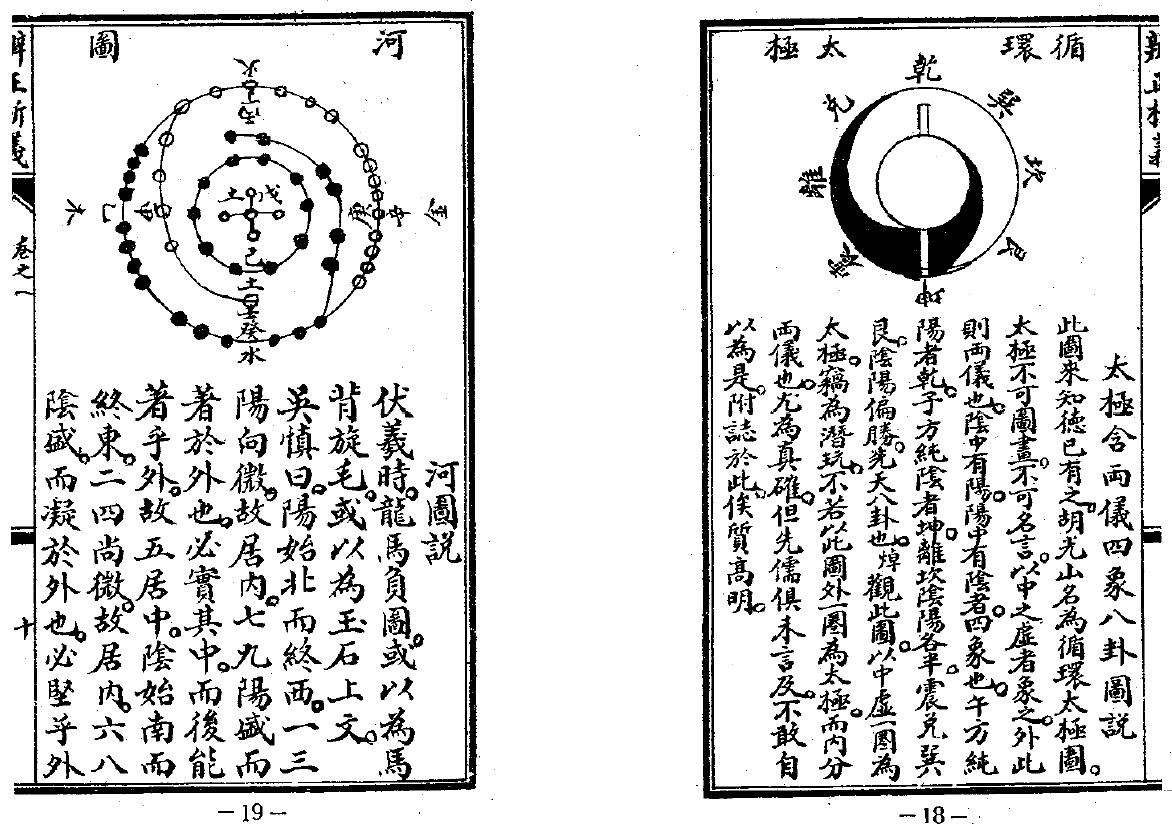 循環太極
乾
巽
坎
艮
坤
震
離
兌
太極含兩儀四象八卦圖說
此圖來知德已有之胡光山名為循環太極圖。
太極不可圖畫。不可名言。以中之虛者象之。外此
則兩儀也。陰中有陽。陽中有陰者。四象也。午方純
陽者乾。子方純陰者坤。離坎陰陽各半。震兌巽
艮。陰陽偏勝。先天八卦也。焯觀此圖。以中虛一圈為
太極。竊為潛玩。不若以此圖外一圈為太極。而內分
兩儀也。尤為真確。但先儒俱未言及。不敢自
以為是。附誌於此。俟質高明。
—18—
河圖
火
丙丁
土
戊
己
土
壬癸
水
木
乙
甲
庚
辛
金
河圖說
伏羲時。龍馬負圖。或以為馬
背旋毛。或以為玉石上文。
吳慎曰。陽始北而終西。一三
陽向微。故居內。七九陽盛而
著於外也。必實其中。而後能
著乎外。故五居中。陰始南而
終東。二四尚微。故居內。六八
陰盛而凝於外也。必堅乎外
卷之一
十
—19—